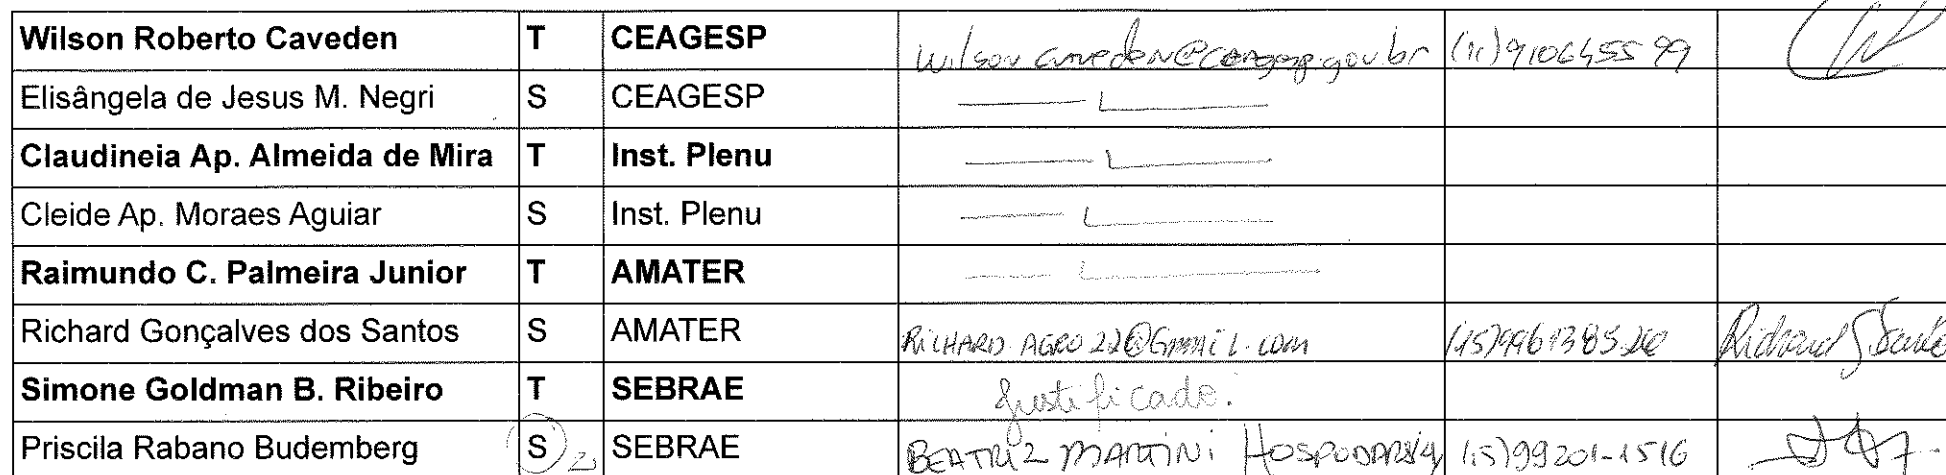 Wilson Roberto Caveden T CEAGESP wilson.caveden@ceagesp.gov.br (11)910645599
Elisângela de Jesus M. Negri S CEAGESP
Claudineia Ap. Almeida de Mira T Inst. Plenu
Cleide Ap. Moraes Aguiar S Inst. Plenu
Raimundo C. Palmeira Junior T AMATER
Richard Gonçalves dos Santos S AMATER RICHARD.AGRO22@GMAIL.COM Richard Santos
Simone Goldman B. Ribeiro T SEBRAE Justificado.
Priscila Rabano Budemberg S SEBRAE BEATRIZ MARTINI (15)99201-1516